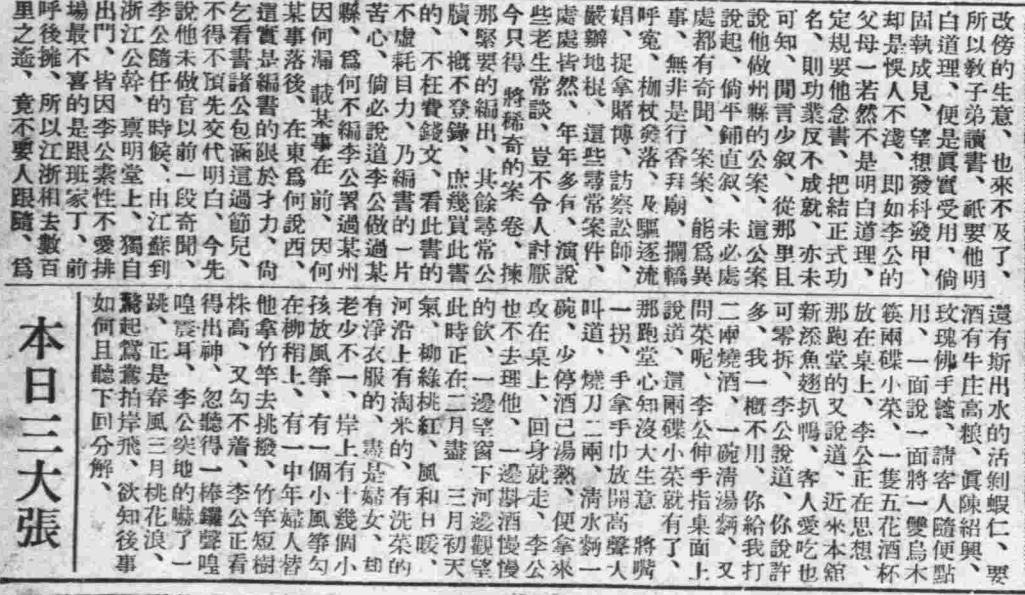 改傍的生意、也來不及了、
所以敎子弟讀書、祇要他明
白道理、便是眞實受用、倘
固執成見、望想發科發甲、
却是悞人不淺、卽如李公的
父母一若然不是明白道理、
定規要他念書、把結正式功
名、則功業反不成就、亦未
可知、閒言少叙、從那里且
說他做州縣的公案、這公案
說起、倘平鋪直叙、未必處
處都有奇聞、案案、能爲異
事、無非是行香拜廟、攔轎
呼寃、枷杖發落、及驅逐流
娼、捉拿賭博、訪察訟師、
嚴辦地棍、這些尋常案件、
處處皆然、年年多有、演說
些老生常談、豈不令人討厭
今只得將稀奇的案卷、揀
那緊要的編出、其餘尋常公
牘、概不登錄、庶幾買此書
的、不枉費錢文、看此書的
不虛耗目力、乃編書的一片
苦心、倘必說道李公做過某
縣、爲何不編李公署過某州
因何漏載某事在前、因何
某事落後、在東爲何說西、
這實是編書的限於才力、尙
乞看書諸公包涵這過節兒、
不得不預先交代明白、今先
說他未做官以前一段奇聞、
李公隨任的時候、由江蘇到
浙江公幹、禀明堂上、獨自
出門、皆因李公素性不愛排
場最不喜的是跟班家丁、前
呼後擁、所以江浙相去數百
里之遙、竟不要人跟隨、爲
還有斯出水的活剝蝦仁、要
酒有牛庄高粮、眞陳紹興、
玫瑰佛手、請客人隨便點
用、一面說一面將一雙烏木
筷兩碟小菜、一隻五花酒杯
放在桌上、李公正在思想、
那跑堂的又說道、近來本舘
新添魚翅扒鴨、客人愛吃也
可零拆、李公說道、你說許
多、我一概不用、你給我打
二兩燒酒、一碗淸湯麵、又
問菜呢、李公伸手指桌面上
說道、這兩碟小菜就有了、
那跑堂心知沒大生意將嘴
一拐、手拿手巾放開高聲大
叫道、燒刀二兩、淸水麵一
碗、少停酒已湯熱、便拿來
攻在桌上、回身就走、李公
也不去理他、一邊斟酒慢慢
的飮、一邊望窗下河邊觀望
此時正在二月盡、三月初天
氣、柳綠桃紅、風和日暖、
河沿上有淘米的、有洗菜的
有淨衣服的、盡是婦女、却
老少不一、岸上有十幾個小
孩放風箏、有一個小風箏勾
在柳梢上、有一中年婦人替
他拿竹竿去挑撥、竹竿短樹
株高、又勾不着、李公正看
得出神、忽聽得一棒鑼聲喤
喤震耳、李公突地的嚇了一
跳、正是春風三月桃花浪、
驚起鴛鴦拍岸飛、欲知後事
如何且聽下回分解、
本日三大張